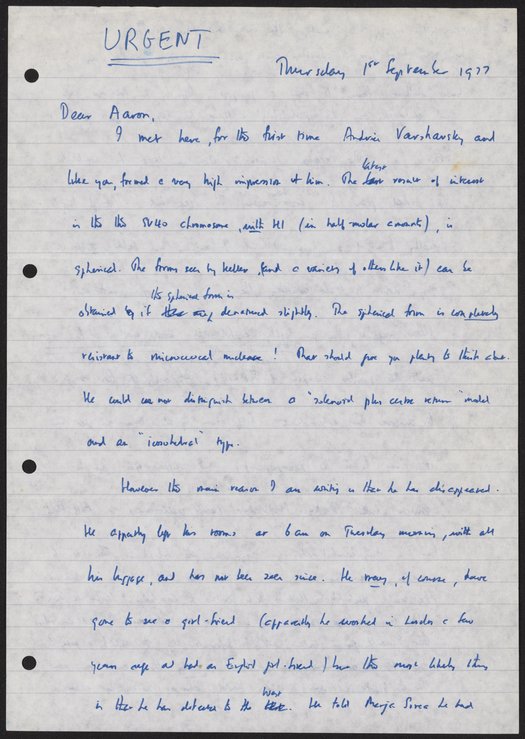 URGENT
Thursday 1st September 1977
Dear Aaron,
I met here, for the first time Andrei Varshavsky and
like you, formed a very high impression of him. The latest result of interest
is that the SV40 chromosome, with H1 (in half molar amounts), is
spherical. The forms seen by Keller (and a variety of others like it) can be
obtained if the spherical form is denatured slightly. The spherical form is completely
resistant to micrococcal nuclease! That should give you plenty to think about.
He could not distinguish between a "solenoid plus centre return" model
and an "icosahedral" type.
However the main reason I am writing is that he has disappeared.
He apparently left his rooms at 6 am on Tuesday morning, with all
his luggage, and has not been seen since. He may, of course, have
gone to see a girl-friend (apparently he worked in London a few
years ago and had an English girl-friend) but the most likely thing
is that he has defected to the West. He told he had